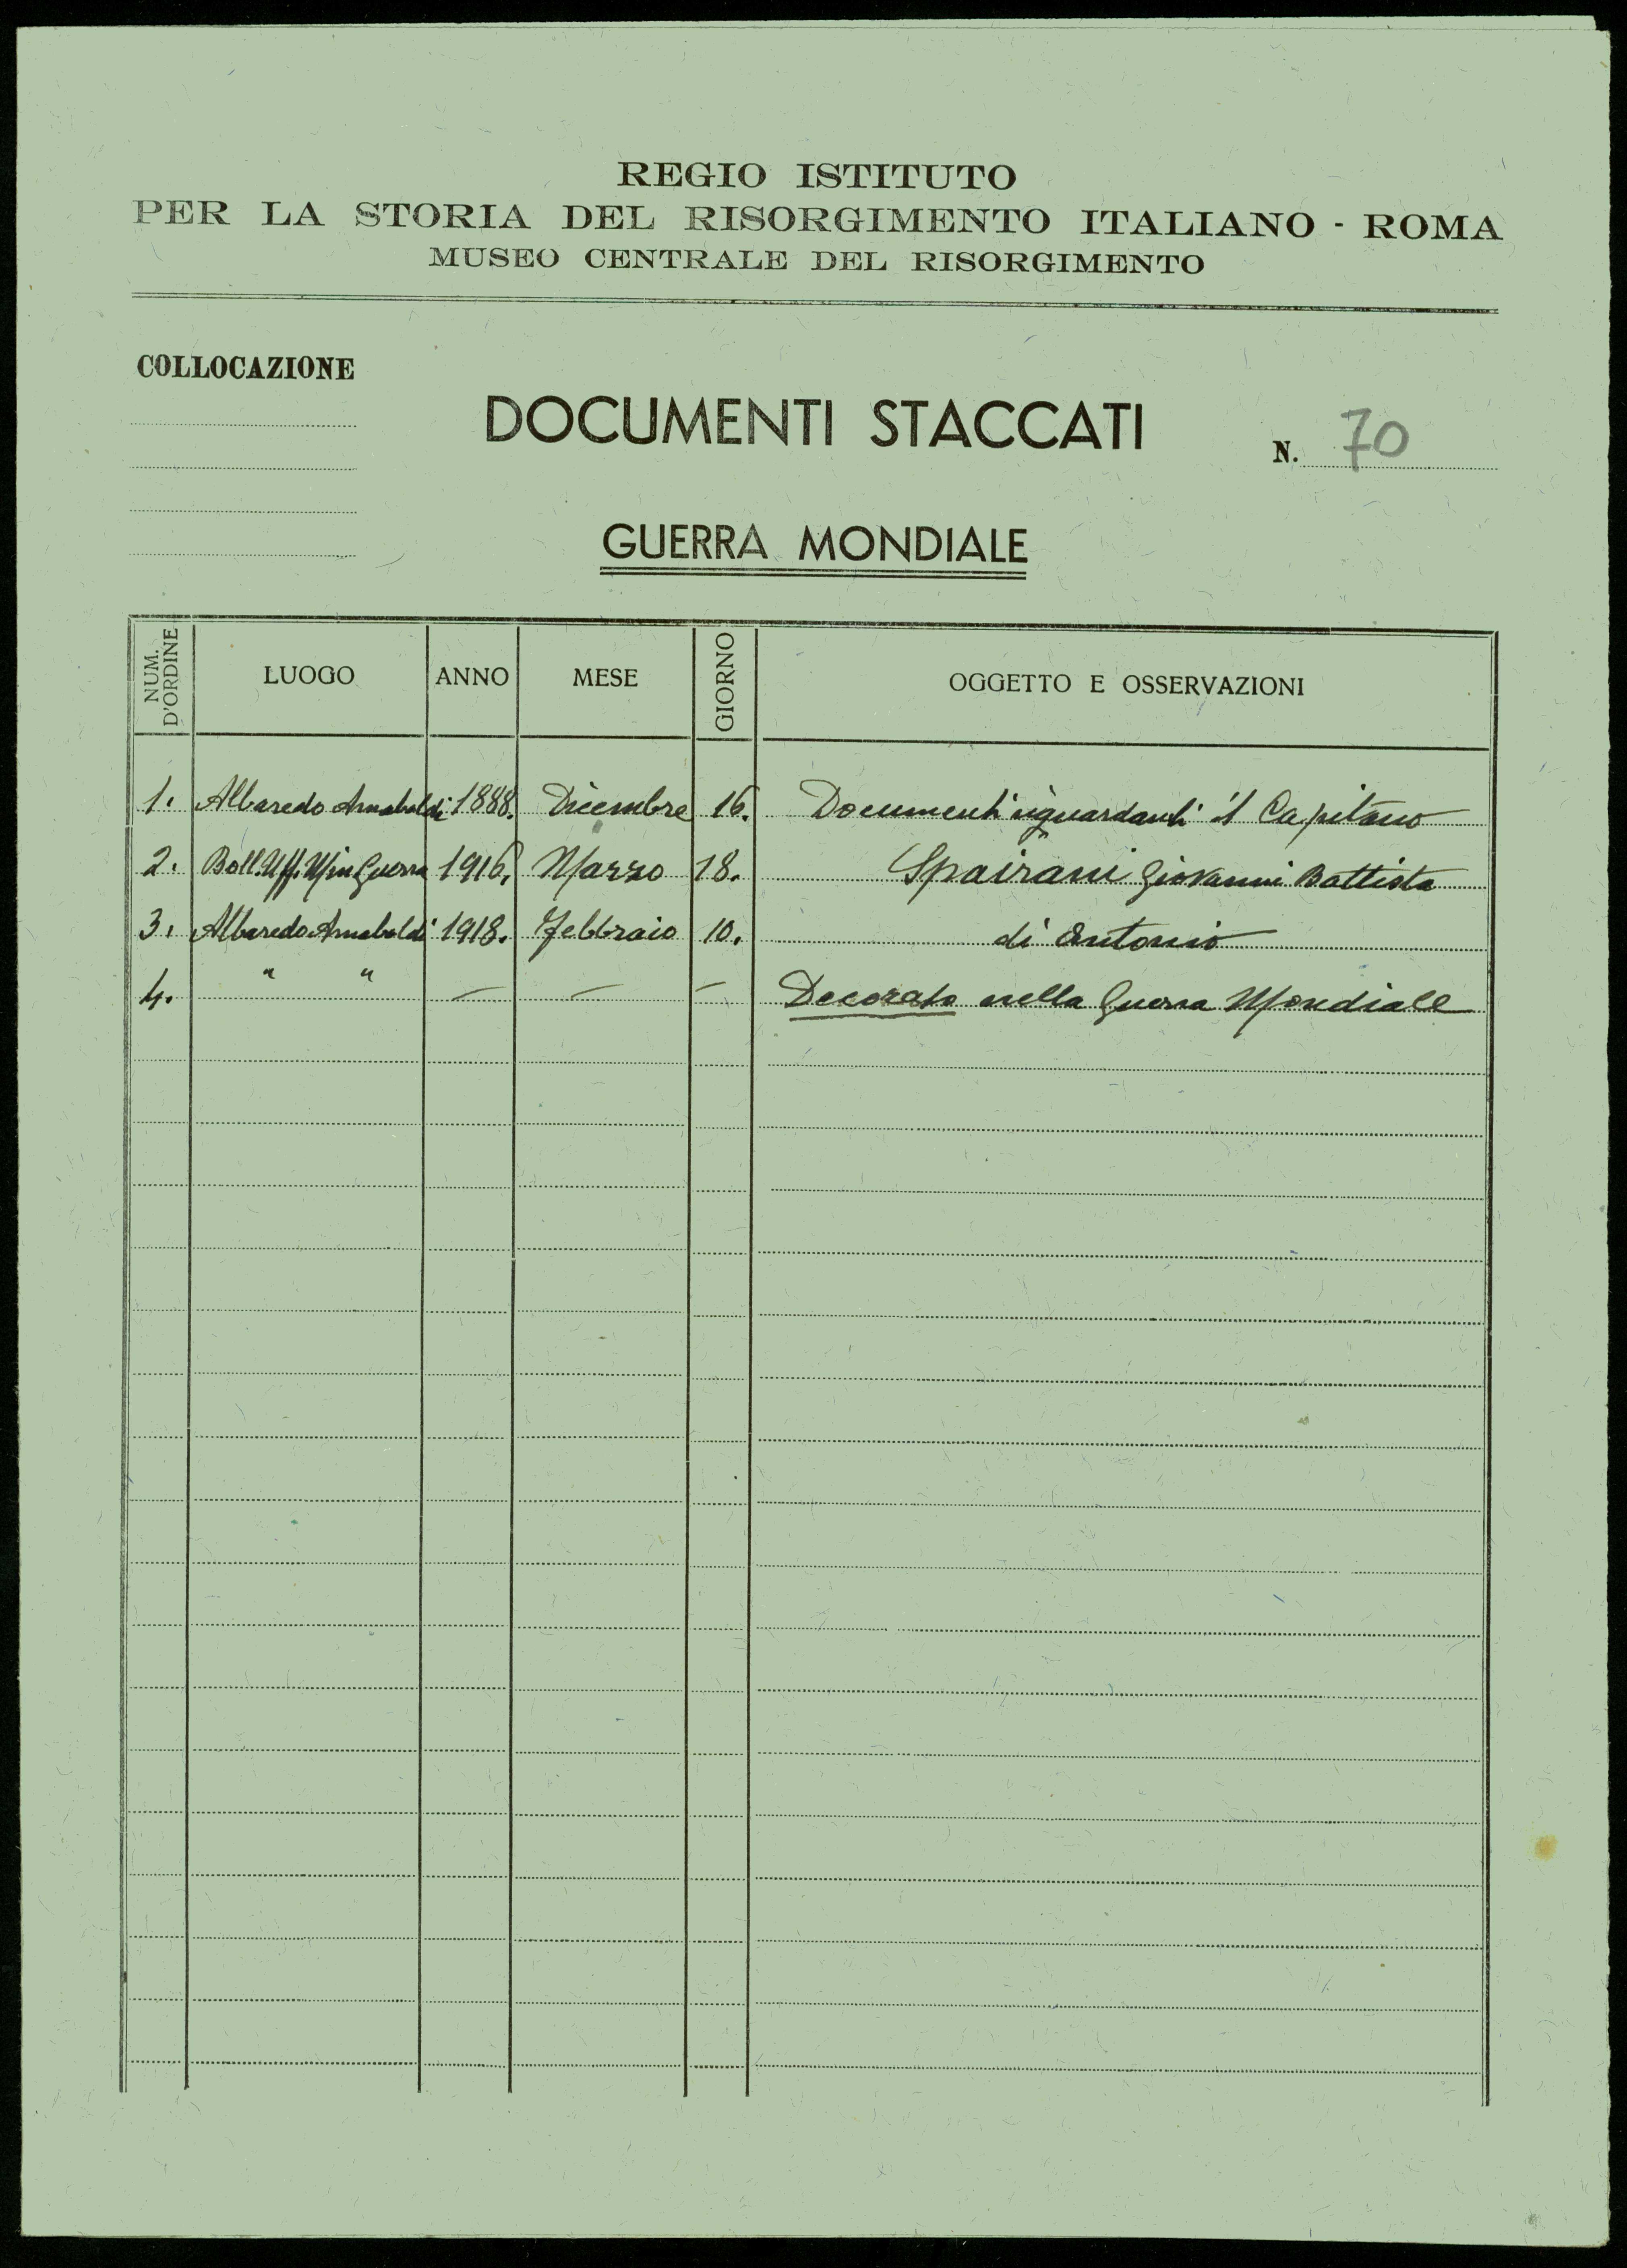 REGIO ISTITUTO
PER LA STORIA DEL RISORGIMENTO ITALIANO - ROMA
MUSEO CENTRALE DEL RISORGIMENTO
COLLOCAZIONE
DOCUMENTI STACCATI
N. 70
GUERRA MONDIALE
NUM. D'ORDINE LUOGO ANNO MESE GIORNO OGGETTO E OSSERVAZIONI
1. Albaredo Arnaboldi 1888. Dicembre 16. Documenti riguardanti il Capitano
2. Boll. Uff. Min Guerra 1916. Marzo 18. Spairani Giovanni Battista
3. Albaredo Arnaboldi 1918. Febbraio 10. di Antonio
4. " " — — — Decorato nella Guerra Mondiale